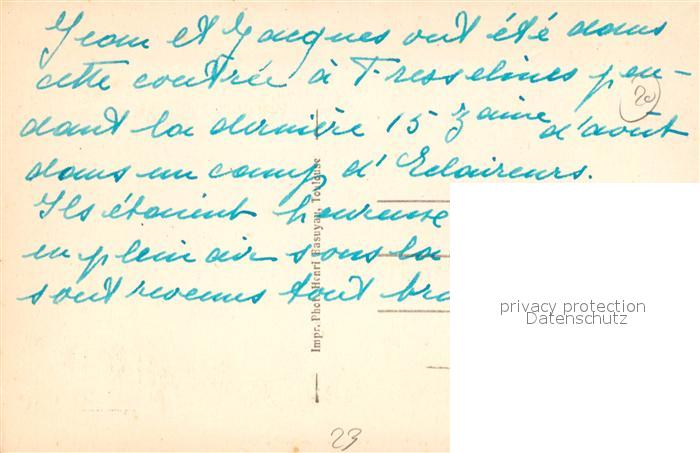 Jean et Jacques ont été dans
cette contrée à Fresselines pen-
20
dant la dernière 15zaine d'août
dans un camp d'Eclaireurs.
Ils étaient heureuse
en plein air sous la
sont revenus tout bro
Impr. Phot. Henri Basuyau, Toulouse
privacy protection
Datenschutz
23